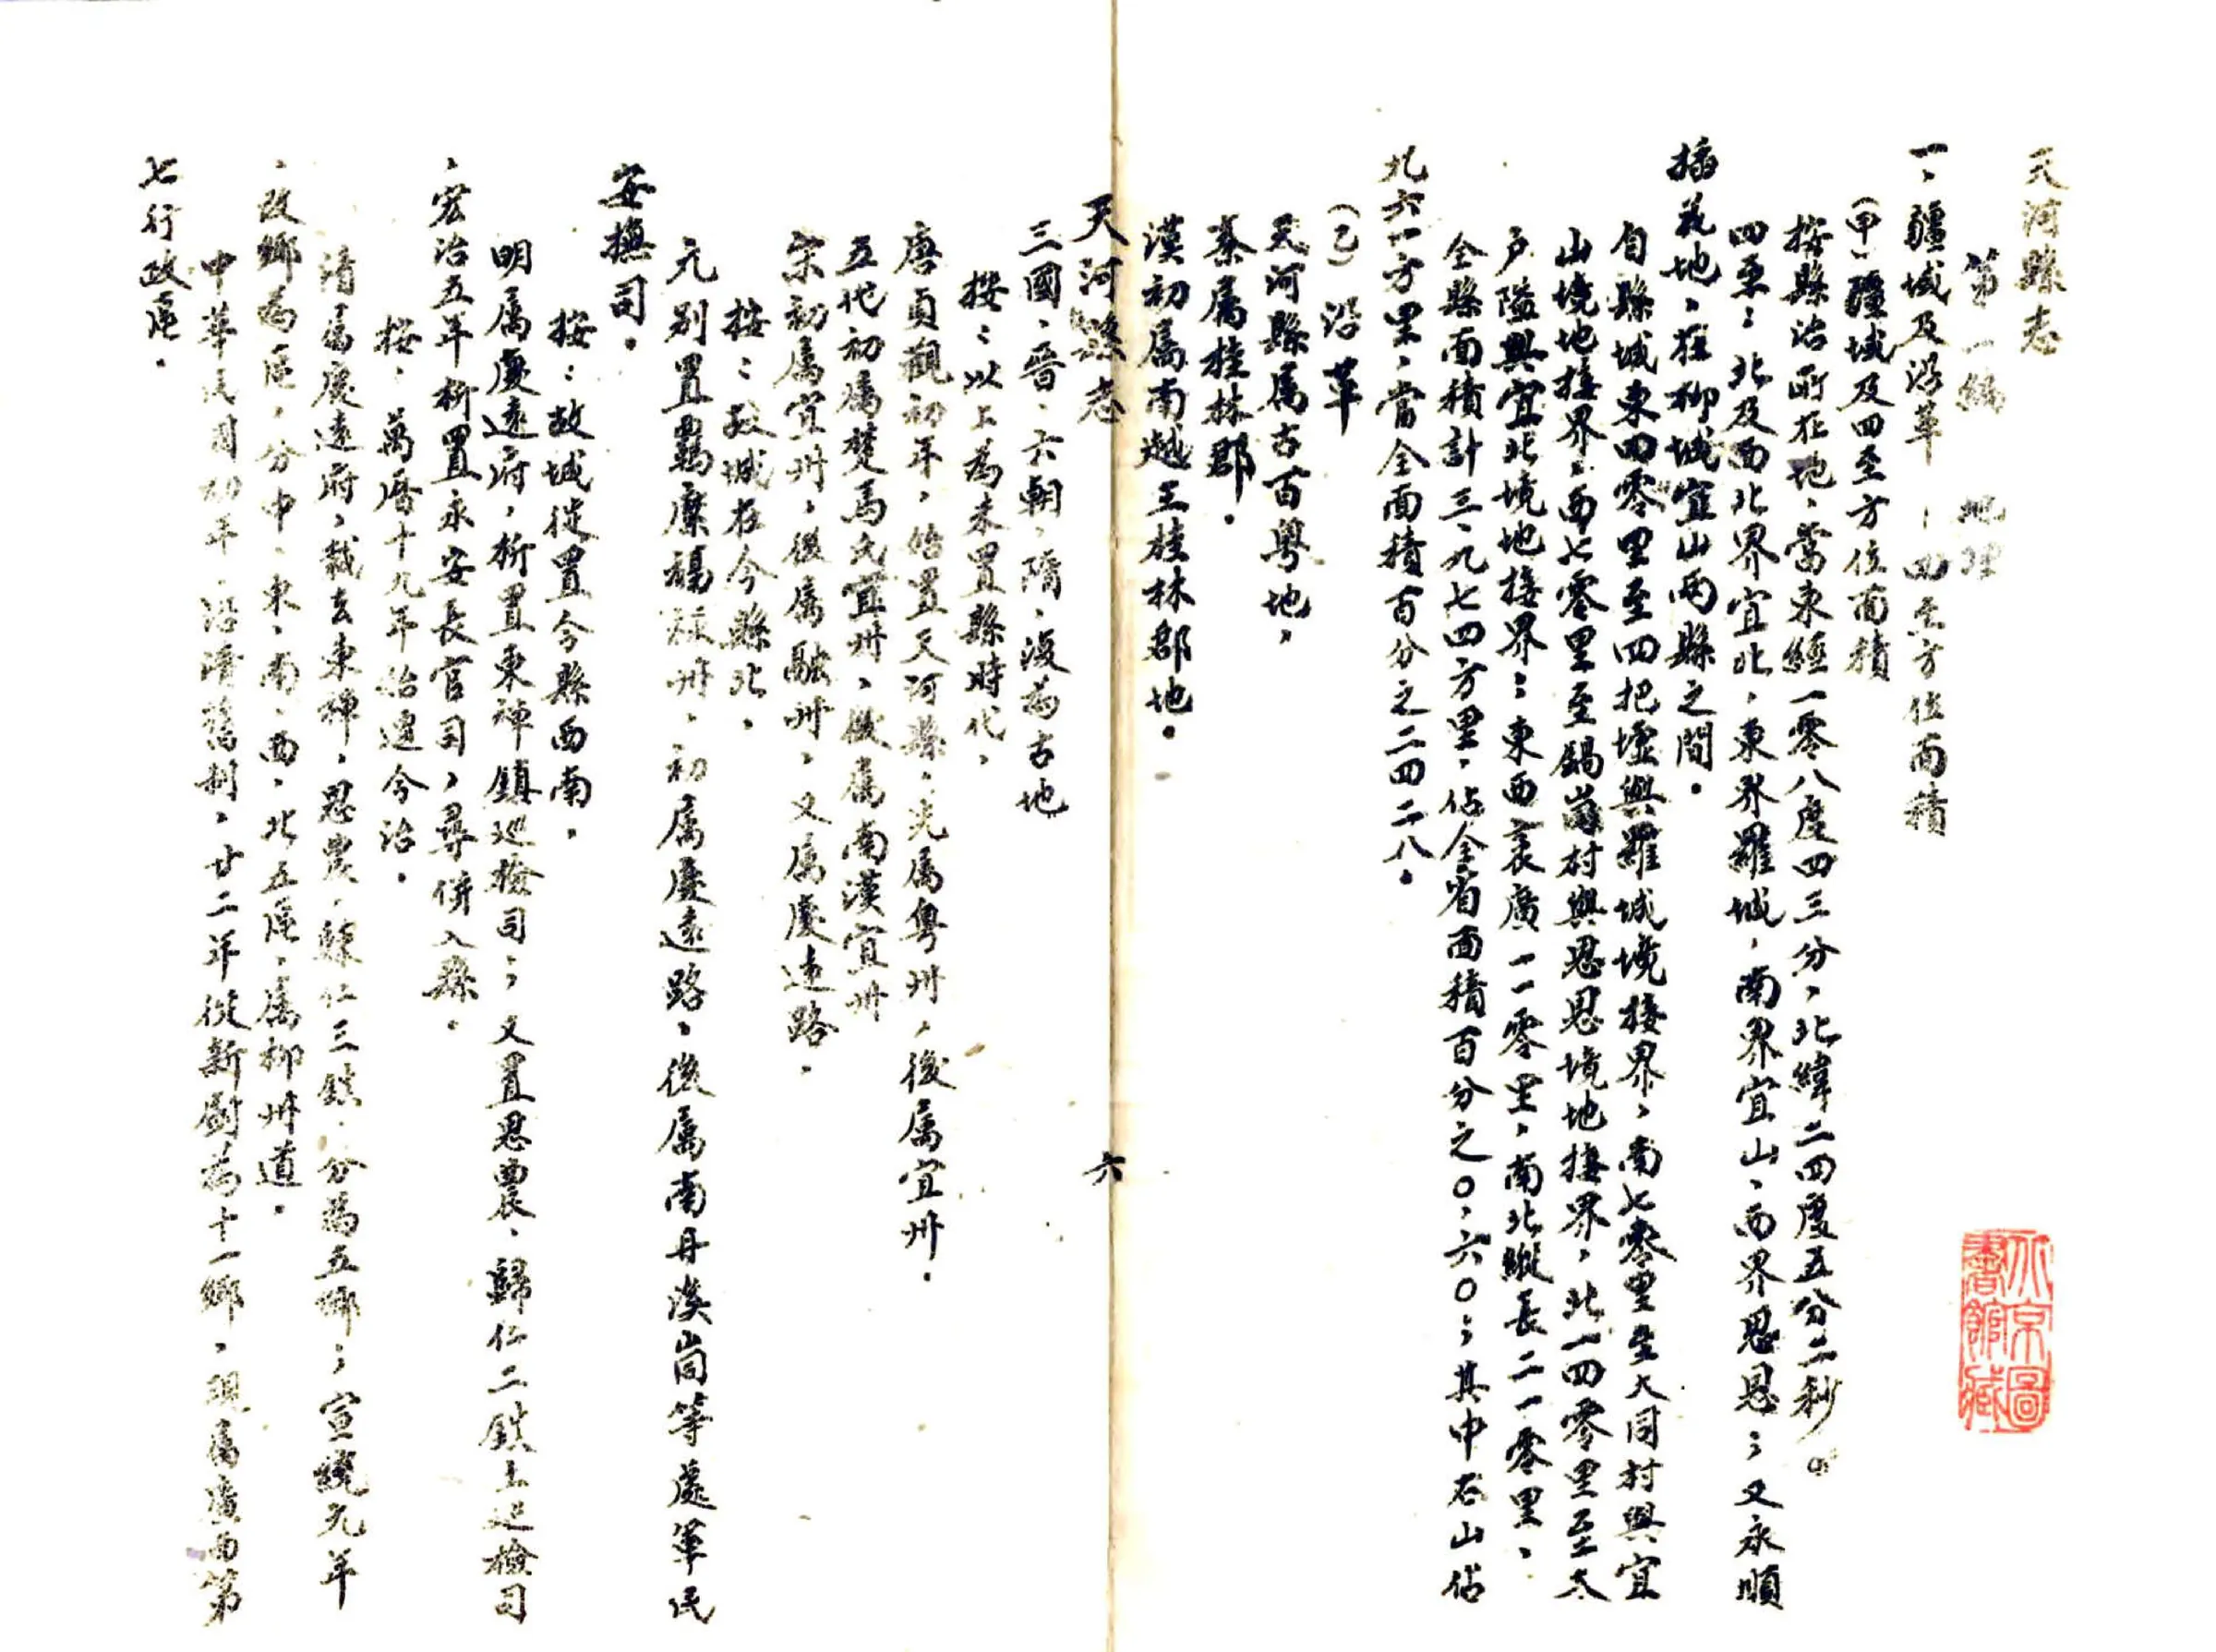 天河縣志
第一編 地理
一、疆域及沿革－四至方位面積
(甲)疆域及四至方位面積
按縣治所在地，當東經一零八度四三分，北緯二四度五分二秒。
四至：北及西北界宜北，東界羅城，南界宜山，西界思恩；又永順
插花地，在柳城宜山兩縣之間。
自縣城東四零里至四把墟與羅城境接界，南七零里至大同村與宜
山境地接界；西七零里至錫蘭村與思恩境地接界，北一四零里至太
戶隘與宜北境地接界；東西袤廣一一零里，南北縱長二一零里、
全縣面積計三、九七四方里，佔全省面積百分之〇、六〇；其中石山佔
九六一方里，當全面積百分之二四二八。
(乙)沿革
天河縣屬古百粵地，
秦屬桂林郡。
漢初屬南越王桂林郡地。
天河縣志 六
三國、晉、六朝、隋，復為古地
按：以上為未置縣時代，
唐貞觀初年，始置天河縣；先屬粵州，後屬宜州。
五代初屬楚馬氏宜州，後屬南漢宜州
宋初屬宜州，後屬融州，又屬慶遠路。
按：故城在今縣北。
元別置羈縻福祿州，初屬慶遠路，後屬南丹溪峒等處軍民
安撫司。
按：故城徙置今縣西南。
明屬慶遠府，析置東禪鎮巡檢司；又置思農、歸仁二鎮土巡檢司
，宏治五年析置永安長官司，尋併入縣。
按：萬曆十九年始遷今治。
清屬慶遠府，裁去東禪，思農，歸仁三鎮，分為五鄉；宣統元年
，改鄉為區，分中、東、南、西、北五區，屬柳州道。
中華民國初年，沿清舊制，廿二年從新劃為十一鄉，現屬廣西第
七行政區。
北京圖書館藏